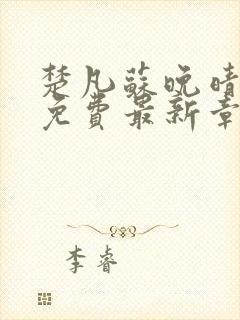 楚凡蘇晚晴
免費最新章
李睿